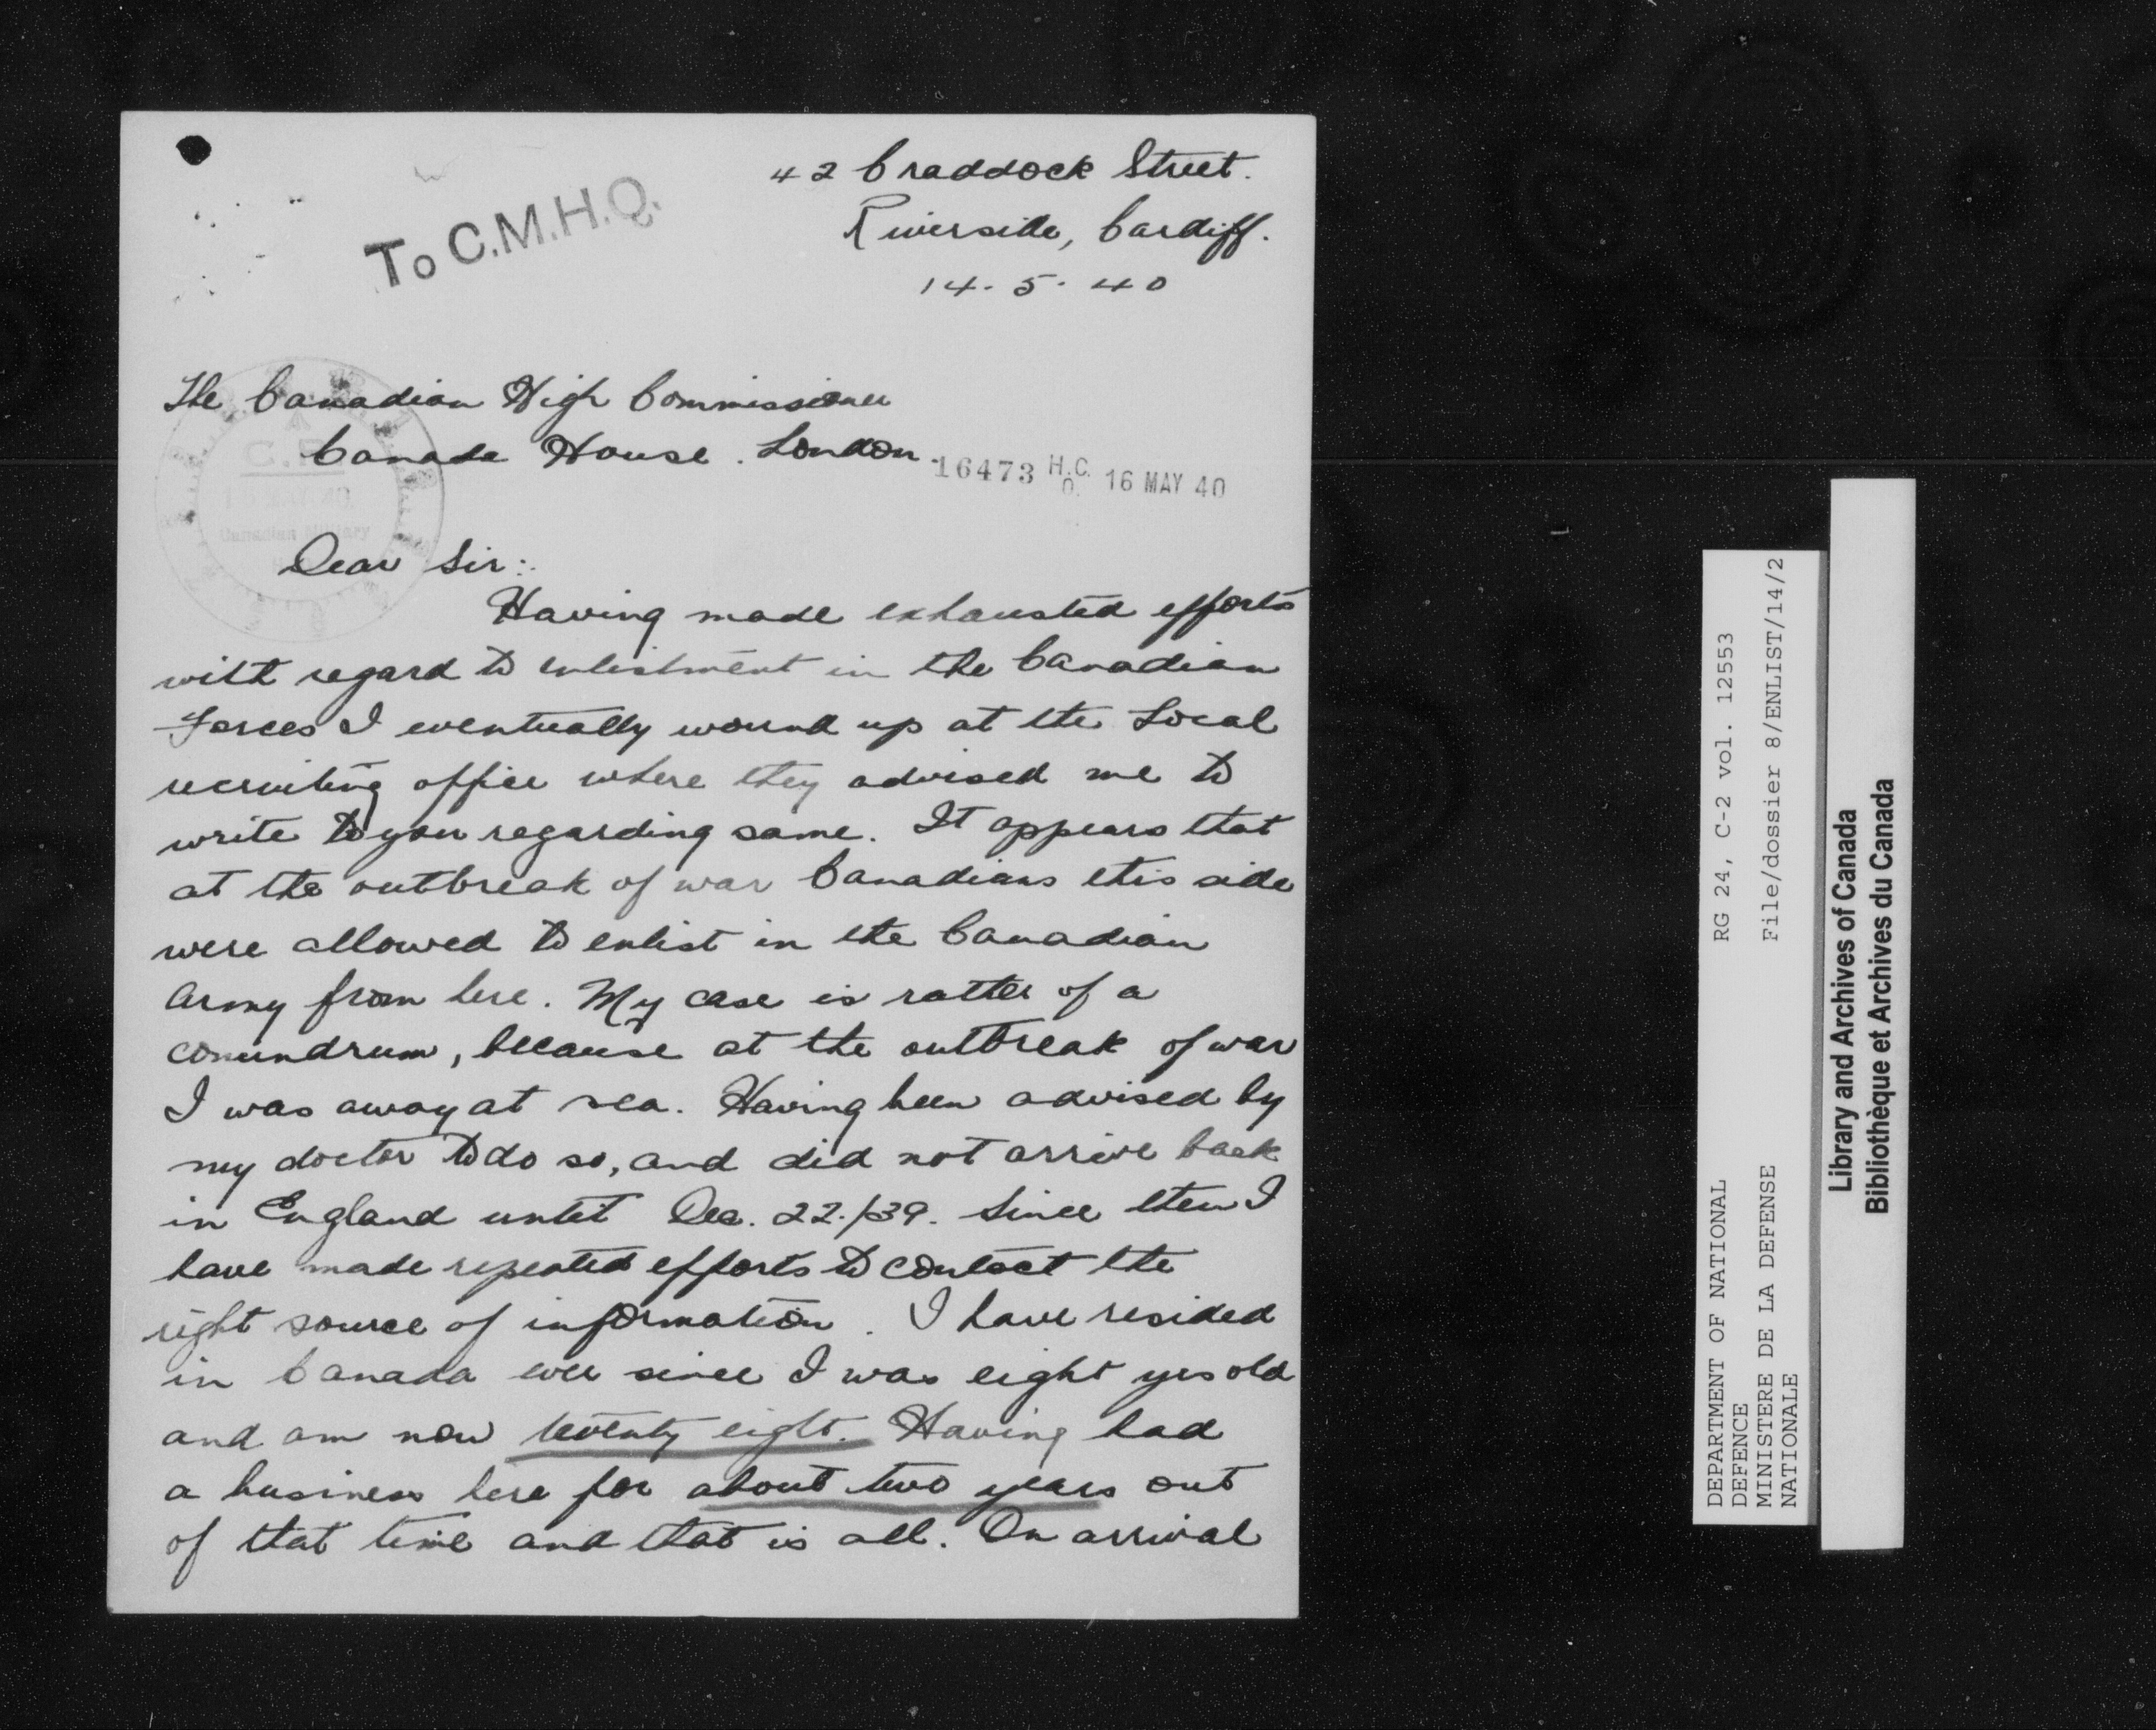 42 Craddock Street.
Riverside, Cardiff.
14. 5. 40
To C.M.H.Q.
The Canadian High Commissioner
Canada House. London.
16473 H.C.O. 16 MAY 40
C.R.
Canadian Military
Dear Sir:.
Having made exhausted efforts
with regard to enlistment in the Canadian
Forces I eventually wound up at the Local
recruiting office where they advised me to
write to you regarding same. It appears that
at the outbreak of war Canadians this side
were allowed to enlist in the Canadian
Army from here. My case is rather of a
conundrum, because at the outbreak of war
I was away at sea. Having been advised by
my doctor to do so, and did not arrive back
in England until Dec. 22./39. Since then I
have made repeated efforts to contact the
right source of information. I have resided
in Canada ever since I was eight yrs old
and am now twenty eight. Having had
a business here for about two years out
of that time and that is all. On arrival
DEPARTMENT OF NATIONAL
DEFENCE
MINISTERE DE LA DEFENSE
NATIONALE
RG 24, C-2 vol. 12553
File/dossier 8/ENLIST/14/2
Library and Archives of Canada
Bibliothèque et Archives du Canada